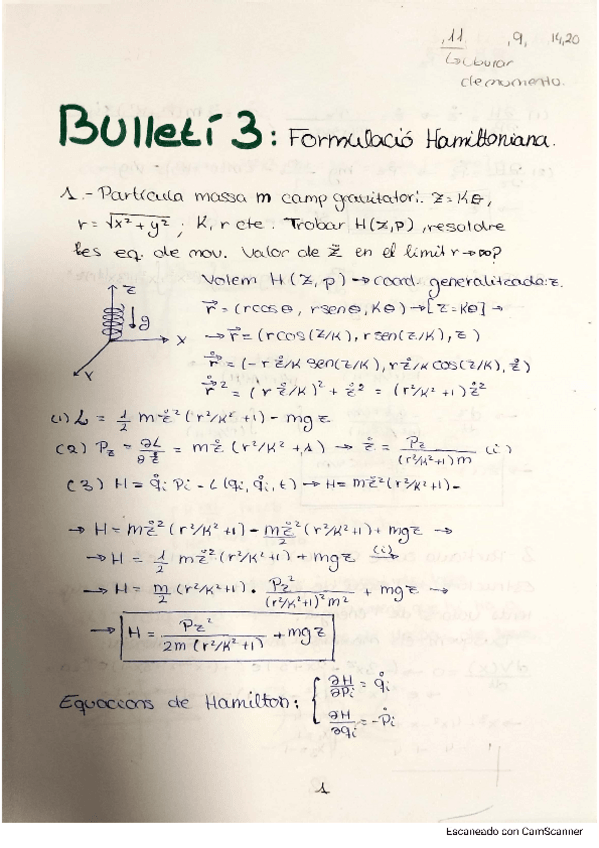 11 , 9, 14,20
de momento.
Bulletí 3: Formulació Hamiltoniana.
1.- Partícula massa m camp gravitatori: z = Kθ,
r = √x² + y² ; K, r cte. Trobar H(z,p), resoldre
les eq. de mov. Valor de z̈ en el límit r → ∞?
Volem H(z, p) → coord. generalitzada: z.
r⃗ = (r cos θ, r sen θ, Kθ) → [z = Kθ] →
→ r⃗ = (r cos(z/K), r sen(z/K), z)
r⃗̇ = (-r ż/K sen(z/K), r ż/K cos(z/K), ż)
r⃗̇² = (r ż/K)² + ż² = (r²/K² + 1) ż²
z
g
x
Y
(1) L = 1/2 m ż² (r²/K² + 1) - mgz
(2) Pz = ∂L/∂ż = m ż (r²/K² + 1) → ż = Pz/(r²/K² + 1)m (i)
(3) H = q̇i Pi - L(qi, q̇i, t) → H = m ż² (r²/K² + 1) -
→ H = m ż² (r²/K² + 1) - m ż²/2 (r²/K² + 1) + mgz →
→ H = 1/2 m ż² (r²/K² + 1) + mgz (i)→
→ H = m/2 (r²/K² + 1) · Pz²/(r²/K² + 1)² m² + mgz →
→ H = Pz²/2m (r²/K² + 1) + mgz
Equacions de Hamilton: { ∂H/∂Pi = q̇i
∂H/∂qi = -Ṗi
1
Escaneado con CamScanner